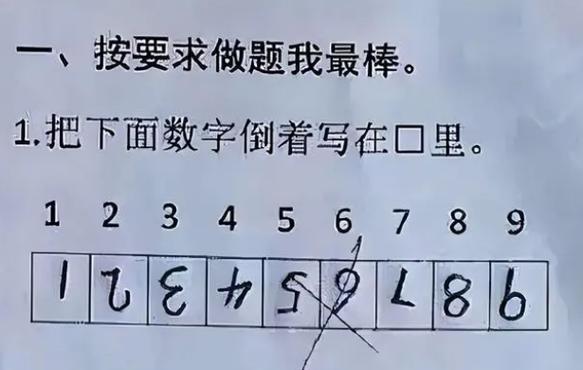 一、按要求做题我最棒。
1.把下面数字倒着写在□里。
1 2 3 4 5 6 7 8 9
1 2 3 4 5 6 7 8 9